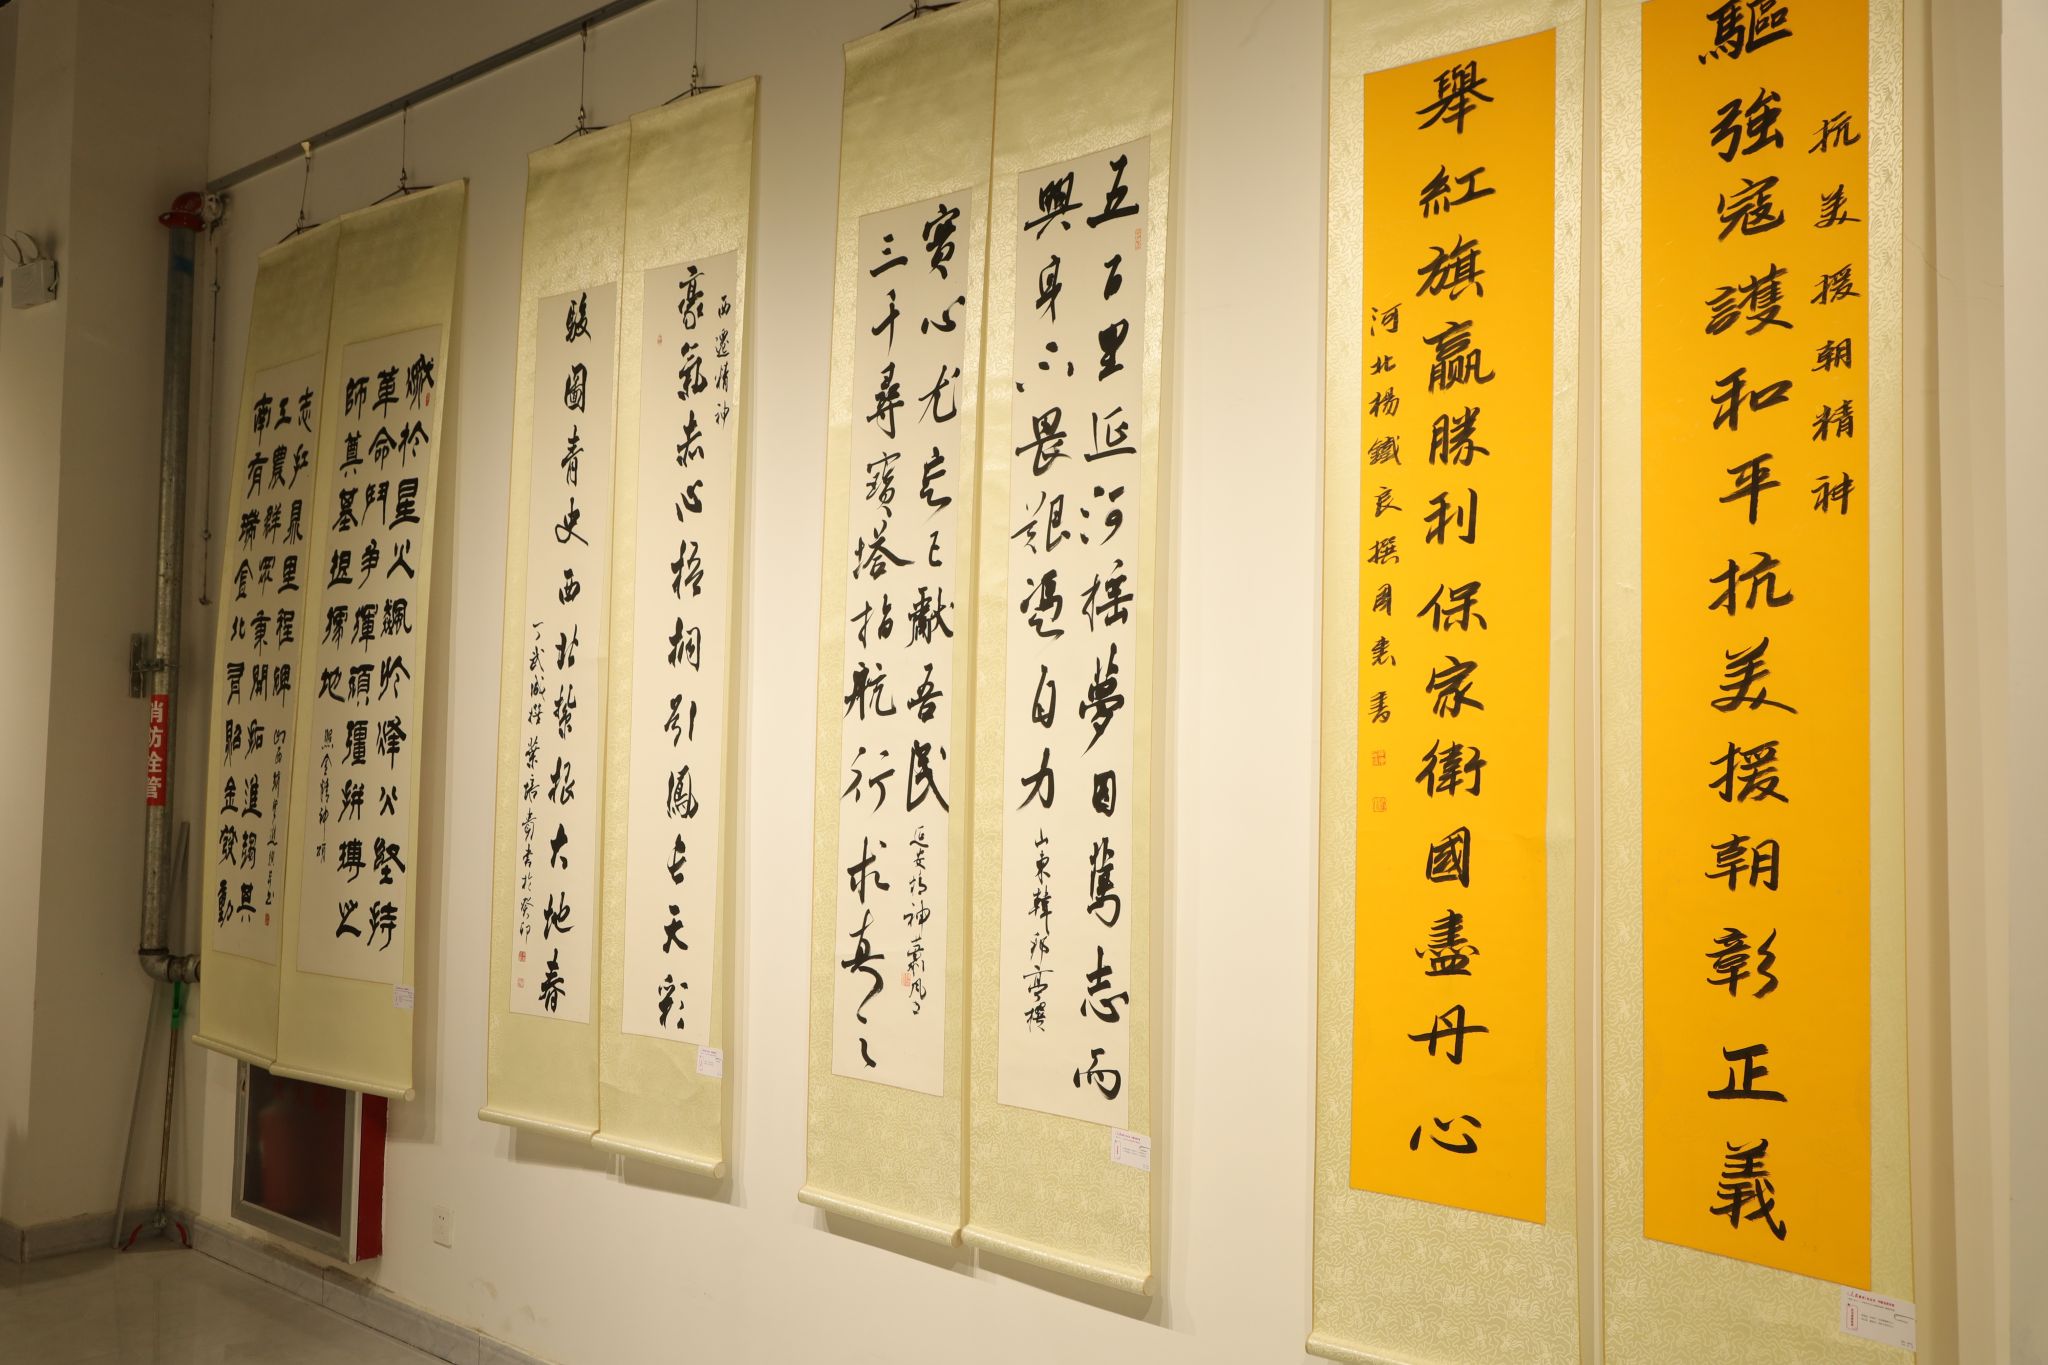 抗美援朝精神
驅強寇護和平抗美援朝彰正義
舉紅旗贏勝利保家衛國盡丹心
河北楊鐵良撰
五百里延河搖夢因篤志而
興身不畏艱憑自力
山東韓邦亭撰
三千尋寶塔指航行求真之
實心尤忘己獻吾民
延安精神
西遷精神
豪氣赤心梧桐引鳳長天彩
駿圖青史西北紮根大地春
丁武成撰 葉培貴書於癸卯
燃於星火飆於烽火堅持
革命鬥爭揮頑彊拼搏之
師奠基根據地
照金精神頌
南有瑞金北有照金發動
工農群眾秉開拓進
志紅 里程碑
消防栓管